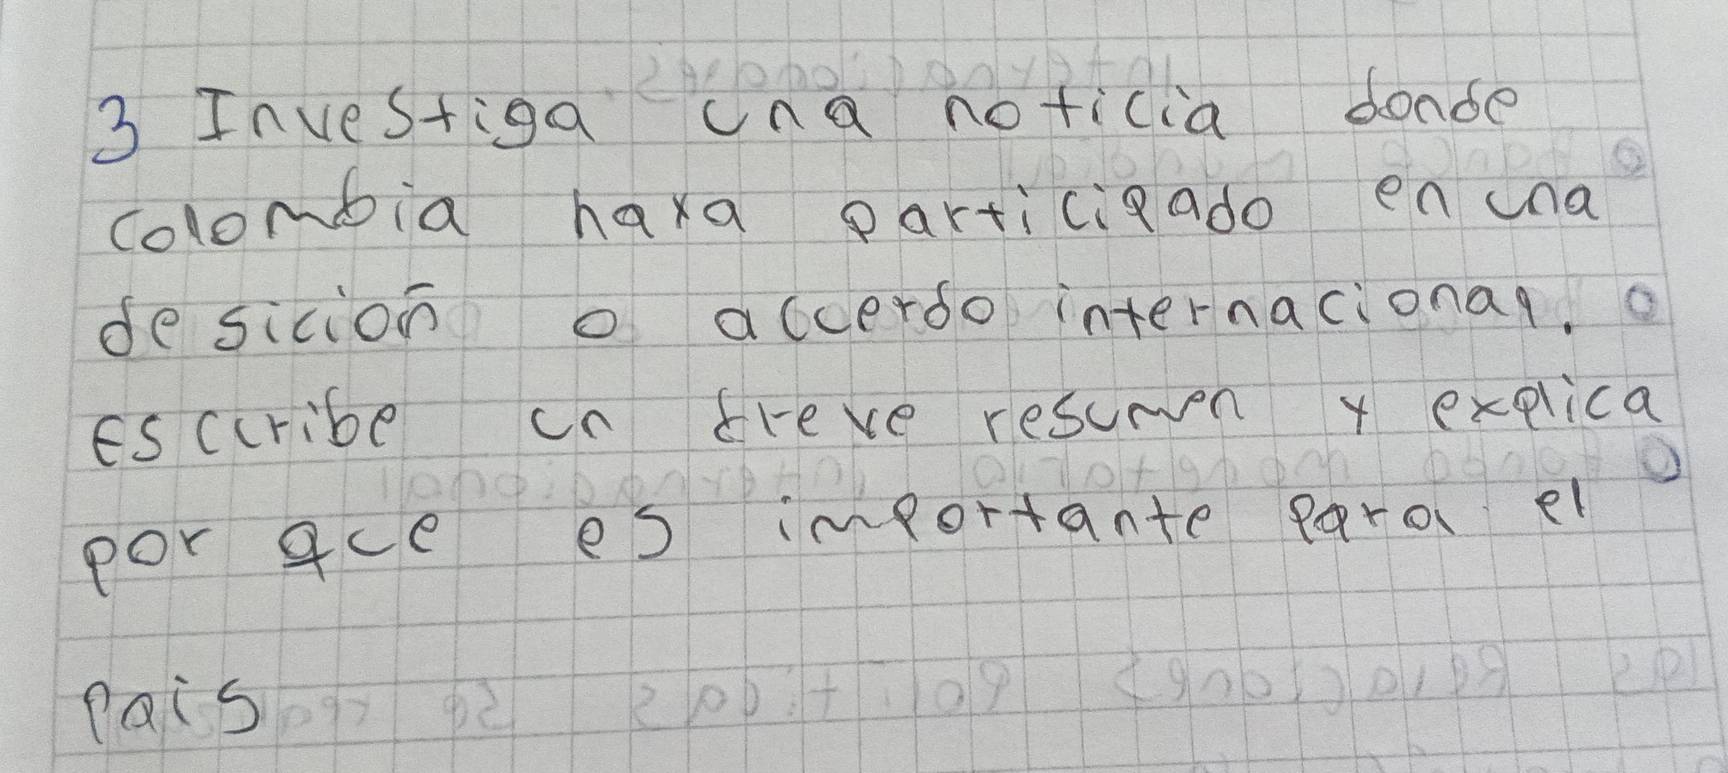 3 Investiga una noticia donde
colombia haya participado en una
desicioñ o accerdo internacional.
Esccribe un breve resumen y explica
por que es importante para el
pais